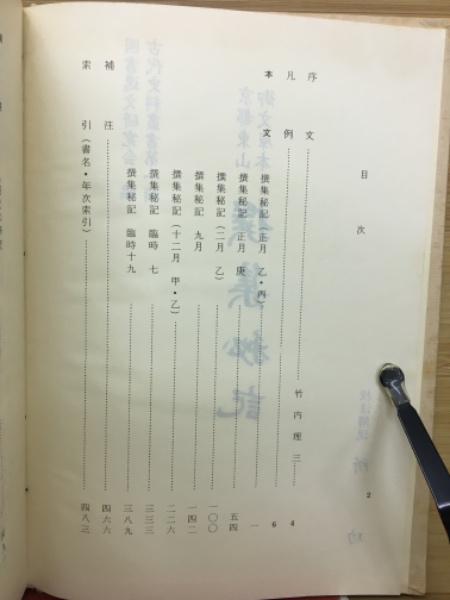 目次
2
序文 竹内理三 4
凡例 6
本文
撰集秘記(正月 乙・丙) 一
撰集秘記 正月 庚 五四
撰集秘記(二月 乙) 一〇〇
撰集秘記 九月 一四二
撰集秘記(十二月 甲・乙) 二二六
撰集秘記 臨時 七 三三三
撰集秘記 臨時十九 三八九
補注 四六六
索引(書名・年次索引) 四八三